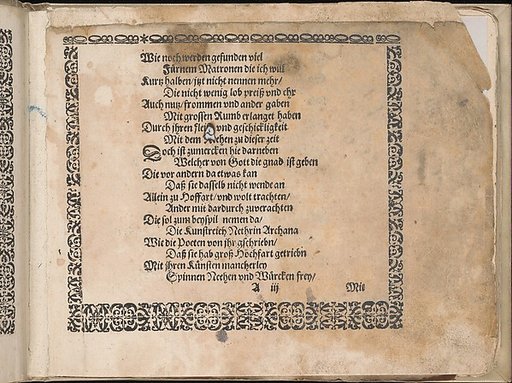 Wie noch werden gefunden viel
Fürnem Matronen die ich will
Kurtz halben / jtzt nicht nennen mehr /
Die nicht wenig lob preiß vnd ehr
Auch nutz / frommen vnd ander gaben
Mit grossen Rumb erlanget haben
Durch jhren fleiß vnd geschickligkeit
Mit dem Nehen zu dieser zeit
Doch ist zumercken hie darneben
Welcher von Gott die gnad ist geben
Die vor andern da etwas kan
Daß sie dasselb nicht wende an
Allein zu Hoffart / vnd wolt trachten /
Ander mit dardurch zuverachten
Die sol zum beyspil nemen da /
Die Kunstreich Nethrin Archana
Wie die Poeten von jhr gschriebn /
Daß sie hab groß Hochfart getriebn
Mit jhren Künsten mancherley
Spinnen Neehen vnd Würcken frey /
A iij Mit